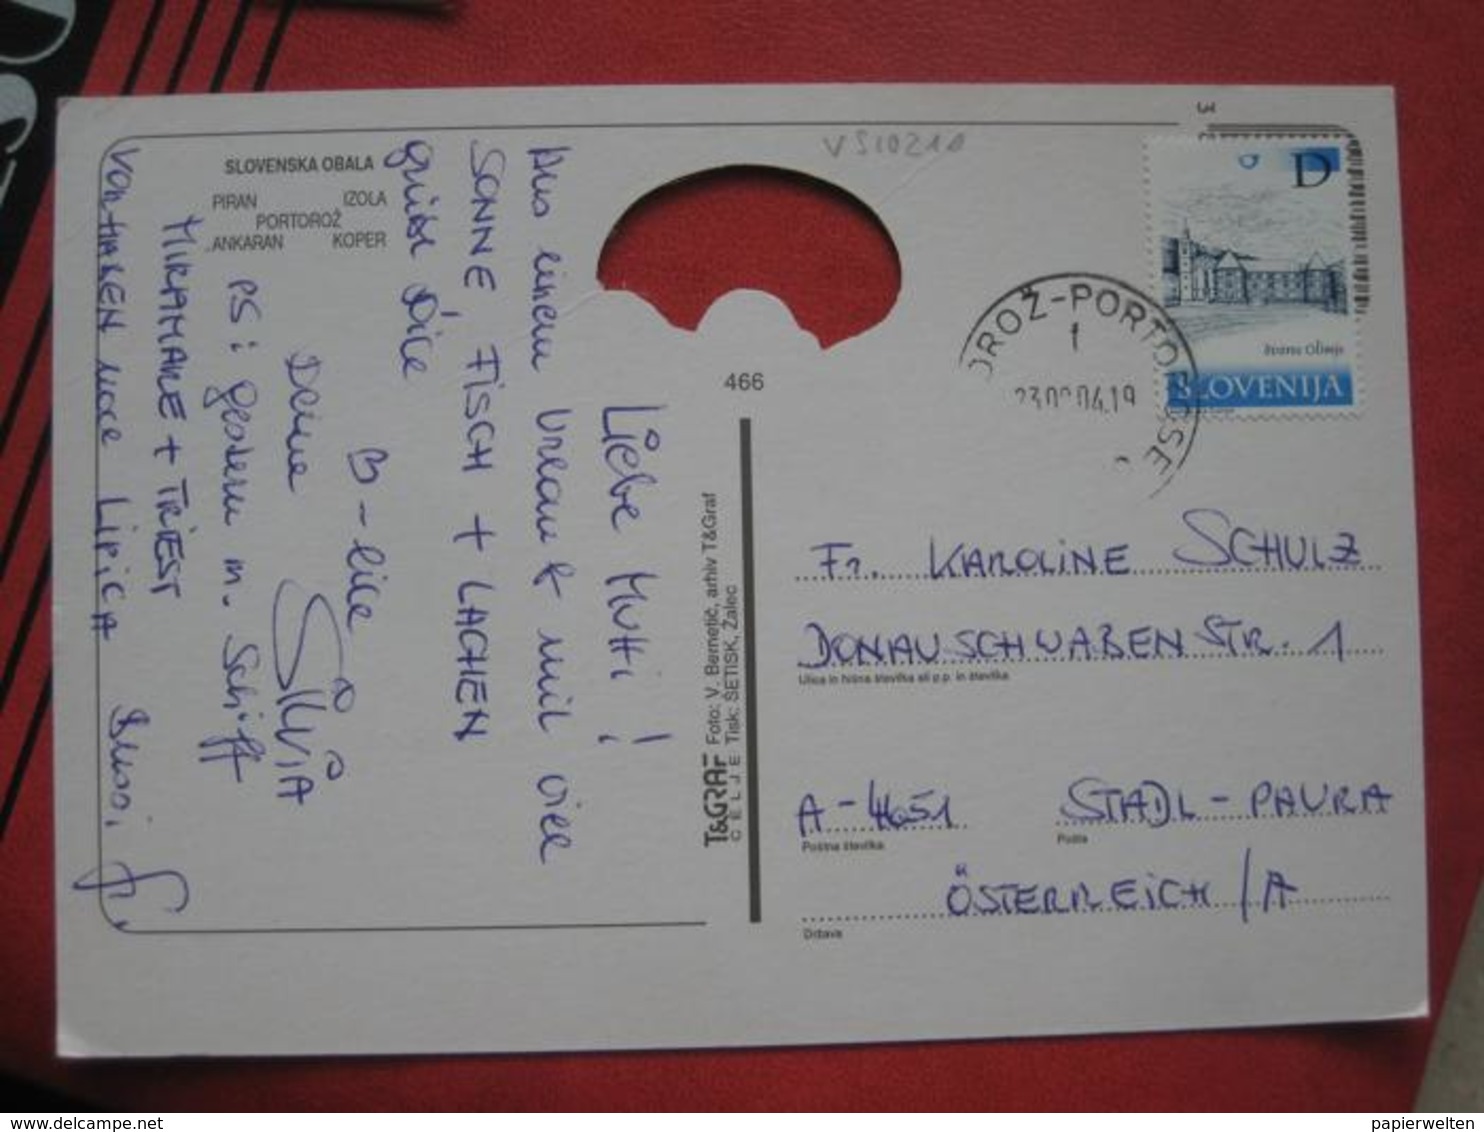 SLOVENSKA OBALA
PIRAN IZOLA
PORTOROŽ
ANKARAN KOPER
Liebe Mutti!
Aus einem Urlaub mit viel
SONNE, FISCH + LACHEN
grüßt Dich
B-lice
Deine SILVIA
PS: gestern m. Schiff
MIRAMARE + TRIEST
VORHABEN noch LIPICA Bussi
VS10210
466
T&GRAF
CELJE
Foto: V. Bernetič, arhiv T&Graf
Tisk: SETISK, Žalec
D
Dvorec Olimje
SLOVENIJA
OROŽ-PORTO
23 04.19
Fr. KAROLINE SCHULZ
DONAUSCHWABENSTR. 1
Ulica in hišna številka ali p.p. in številka
A-4651 STADL-PAURA
Poštna številka Pošta
ÖSTERREICH/A
Država
delcampe.net
papierwelten